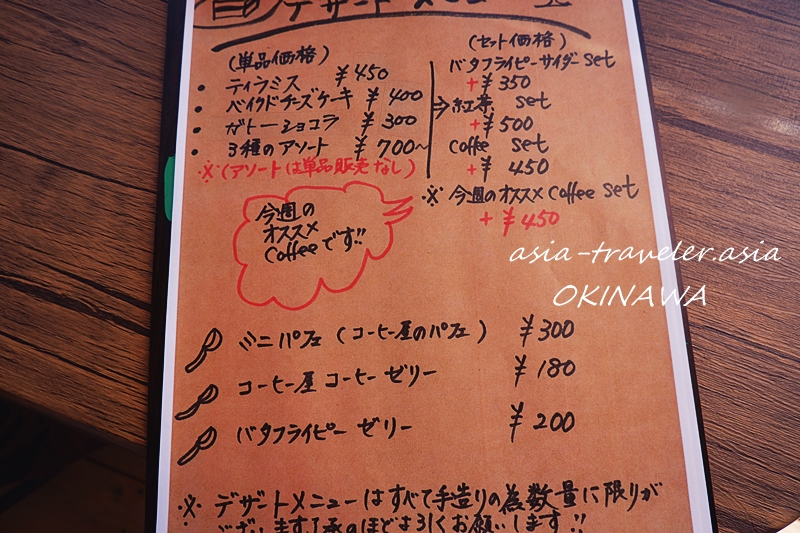 デザートメニュー
(単品価格)
・ティラミス ¥450
・ベイクドチーズケーキ ¥400
・ガトーショコラ ¥300
・3種のアソート ¥700~
※(アソートは単品販売なし)
(セット価格)
バタフライピーサイダーset
+¥350
→紅茶 set
+¥500
Coffee set
+¥450
※今週のオススメCoffee set
+¥450
今週の
オススメ
Coffeeです!!
asia-traveler.asia
OKINAWA
ミニパフェ(コーヒー屋のパフェ) ¥300
コーヒー屋コーヒーゼリー ¥180
バタフライピーゼリー ¥200
※デザートメニューはすべて手造りの為数量に限りが
ございます。了承のほどよろしくお願いします!!